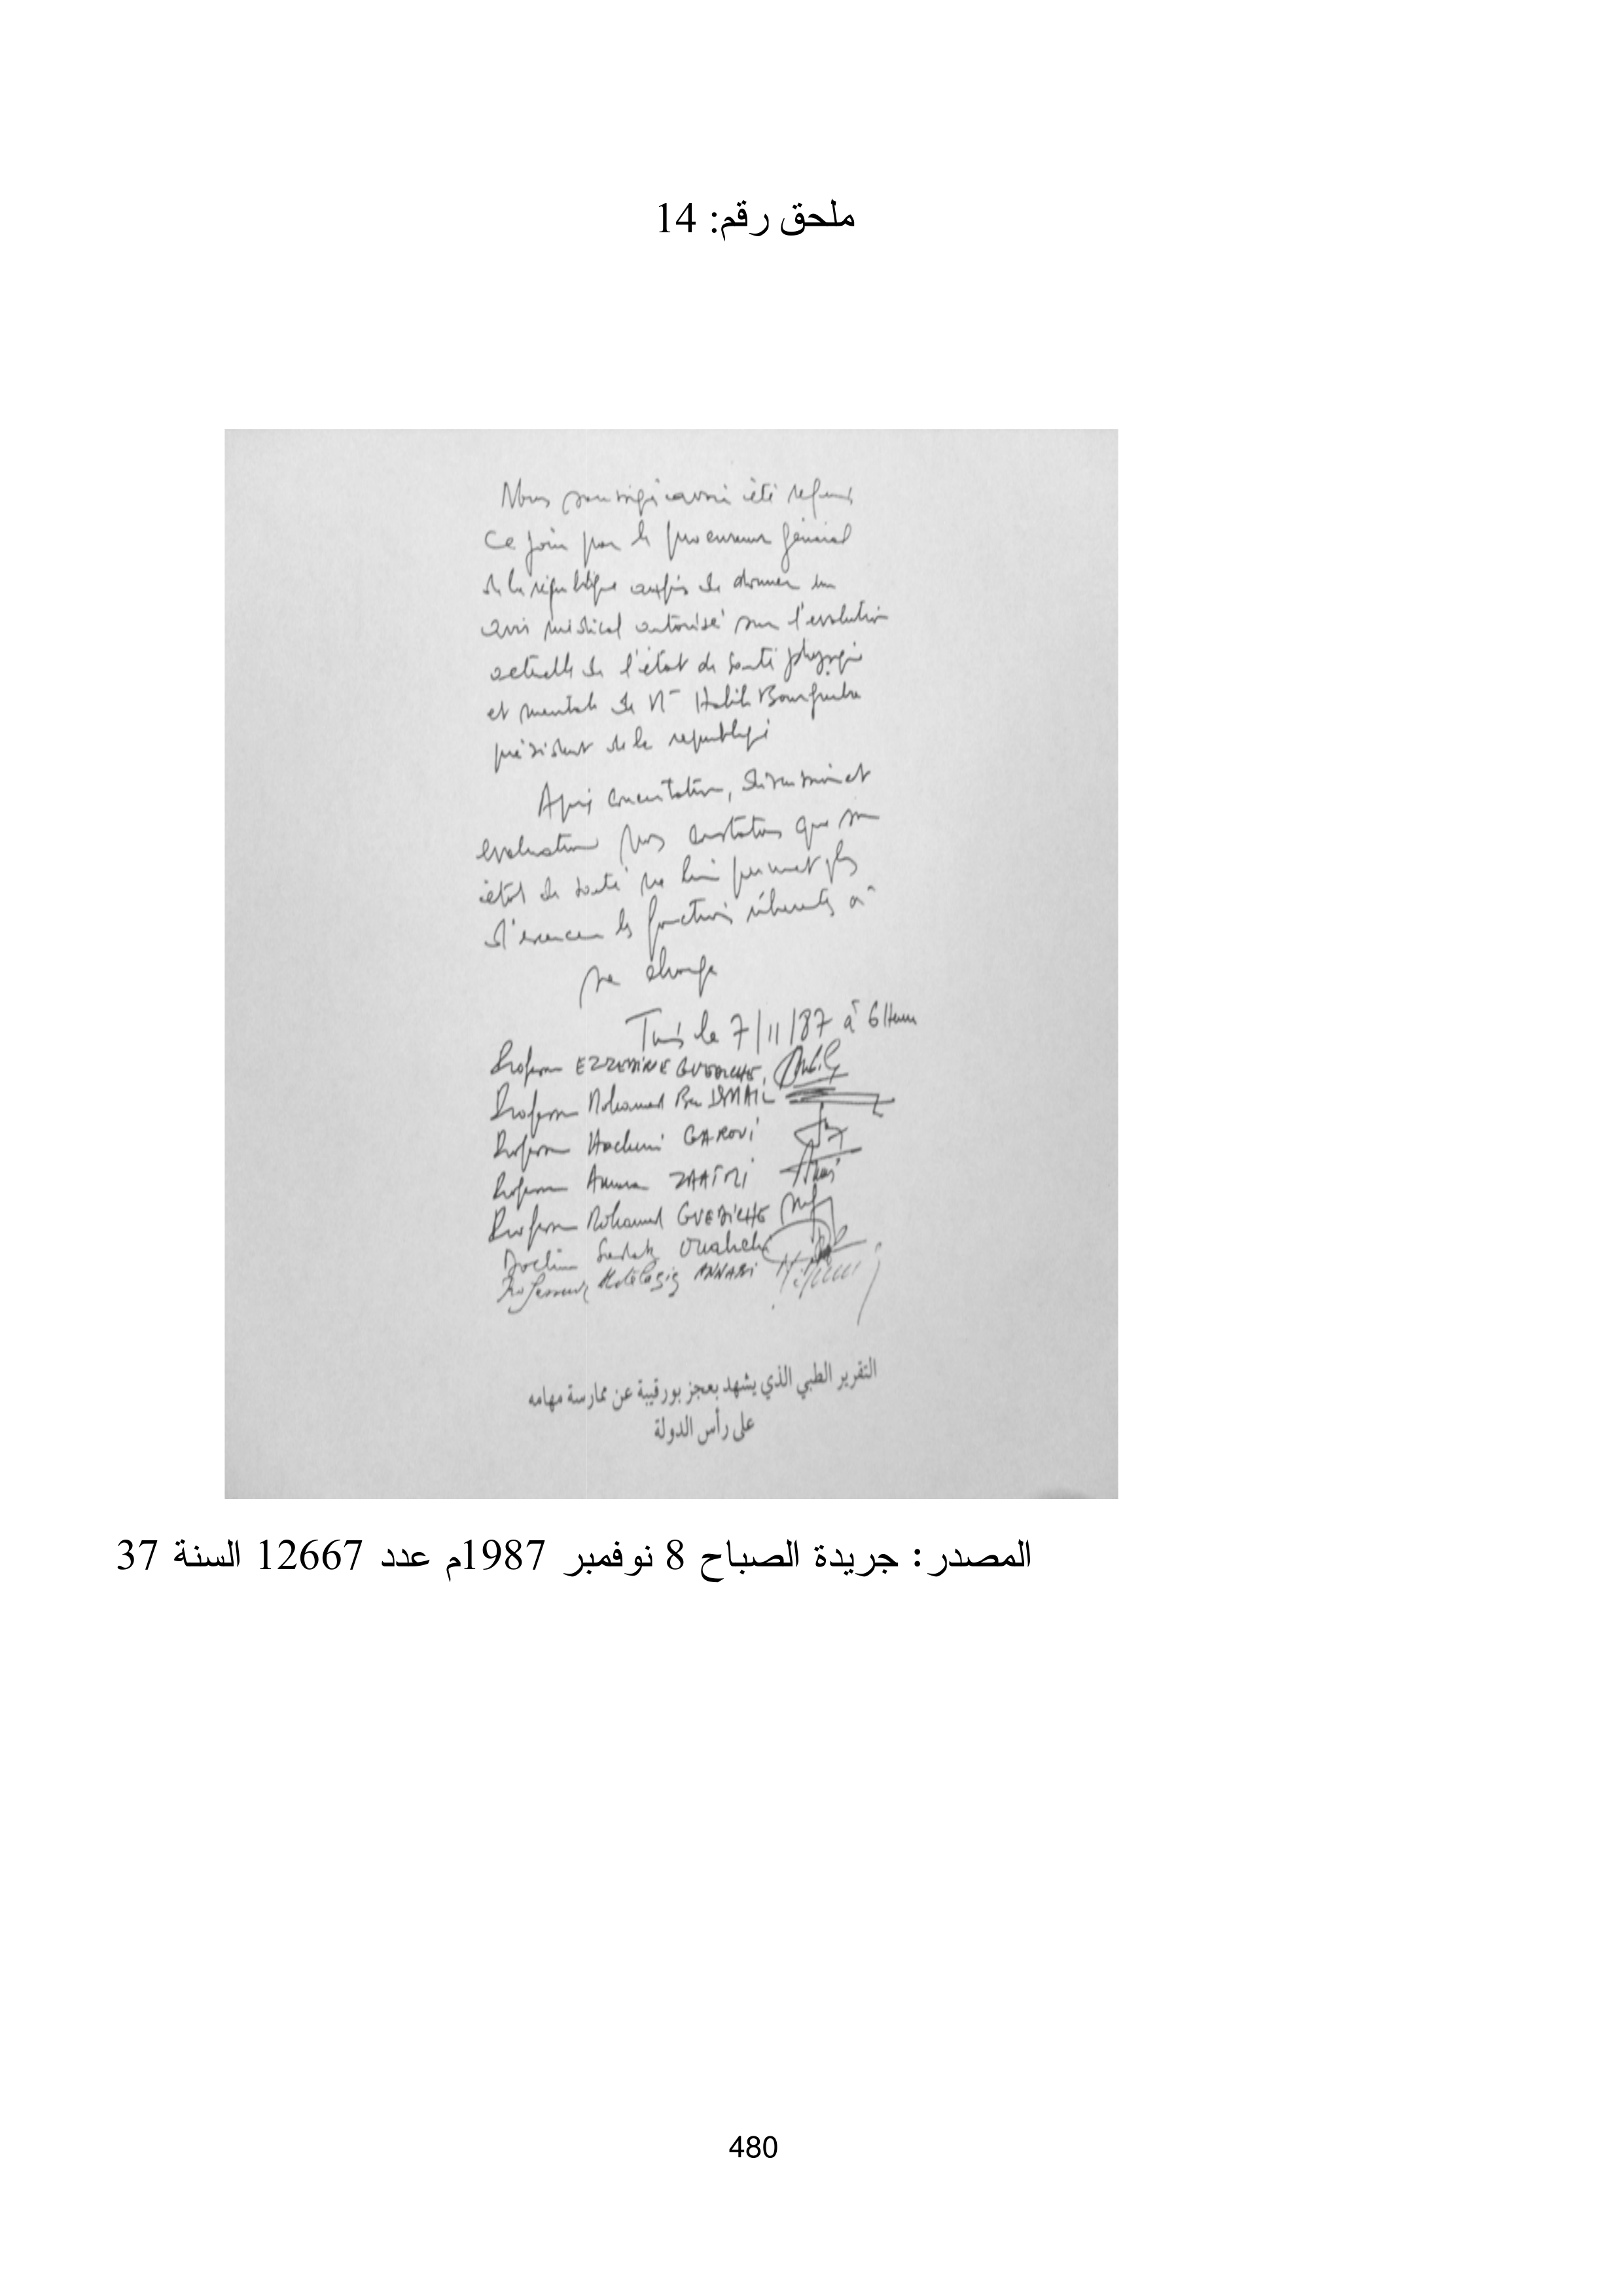 ملحق رقم: 14
Nous soussignés avons été requis
ce jour par le procureur général
de la république aux fins de donner un
avis médical autorisé sur l'evolution
actuelle de l'état de santé physique
et mentale de Mr Habib Bourguiba
président de la republique
Après concertation, discussion et
evaluation nous constatons que son
état de santé ne lui permet plus
d'exercer les fonctions inhérentes à
sa charge
Tunis le 7/11/87 à 6 Heures
Professeur EZZEDINE GUEDICHE
Professeur Mohamed Ben ISMAIL
Professeur Hachemi GAROUI
Professeur Amara ZAAIMI
Professeur Mohamed GUEDICHE
Sadok Ouahchi
Professeur Abdelaziz ANNABI
التقرير الطبي الذي يشهد بعجز بورقيبة عن ممارسة مهامه
على رأس الدولة
المصدر: جريدة الصباح 8 نوفمبر 1987م عدد 12667 السنة 37
480